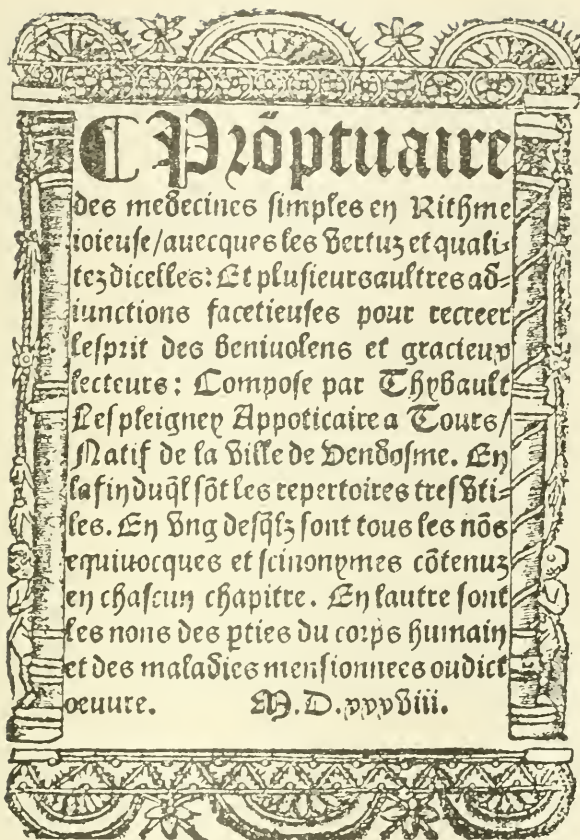 ¶ Prõptuaire
des medecines simples en Rithme
ioieuse/auecques les vertuz et quali-
tez dicelles: Et plusieurs aultres ad-
iunctions facetieuses pour recreer
lesprit des beniuolens et gracieux
lecteurs: Compose par Thybault
Lespleigney Appoticaire a Tours/
Natif de la ville de Vendosme. En
la fin duq̃l sõt les repertoires tresvti-
les. En vng desq̃lz sont tous les nõs
equiuocques et scinonymes cõtenuz
en chascun chapitre. En lautre sont
les nons des pties du corps humain
et des maladies mensionnees oudict
oeuure. M.D.xxxviii.